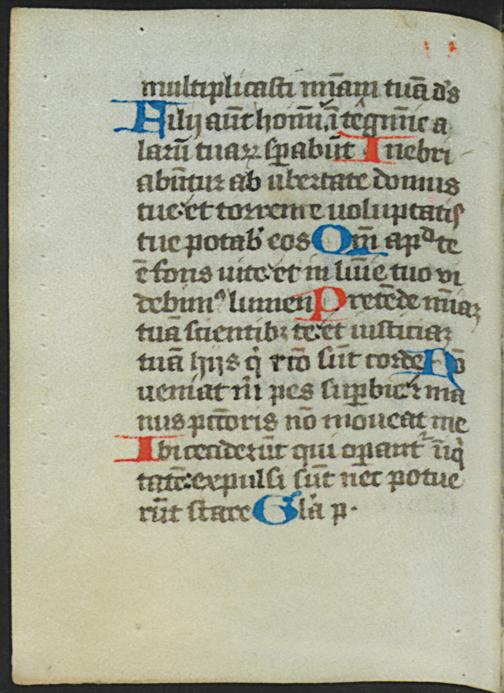 multiplicasti miam tuā ds
Filij aūt homīū ī tegmīe a
larū tuaꝝ sꝑabūt Inebri
abūtur ab ubertate domus
tue·et torrente uoluptatis
tue potab' eos Qm̄ apᵈ te
ē fons uite·et in luīe tuo vi
debim⁹ lumen Pretēde mīaꝫ
tuā scientibꝫ te·et iusticiaꝫ
tuā hijs q̇ rcō sūt corde Nō
veniat m̄i pes suꝑbie·⁊ ma
nus pctōris nō moueat me
Ibi ceciderūt qui oꝑant̄ īiq̇
tatē·expulsi sūt nec potue
rūt stare Glā p·